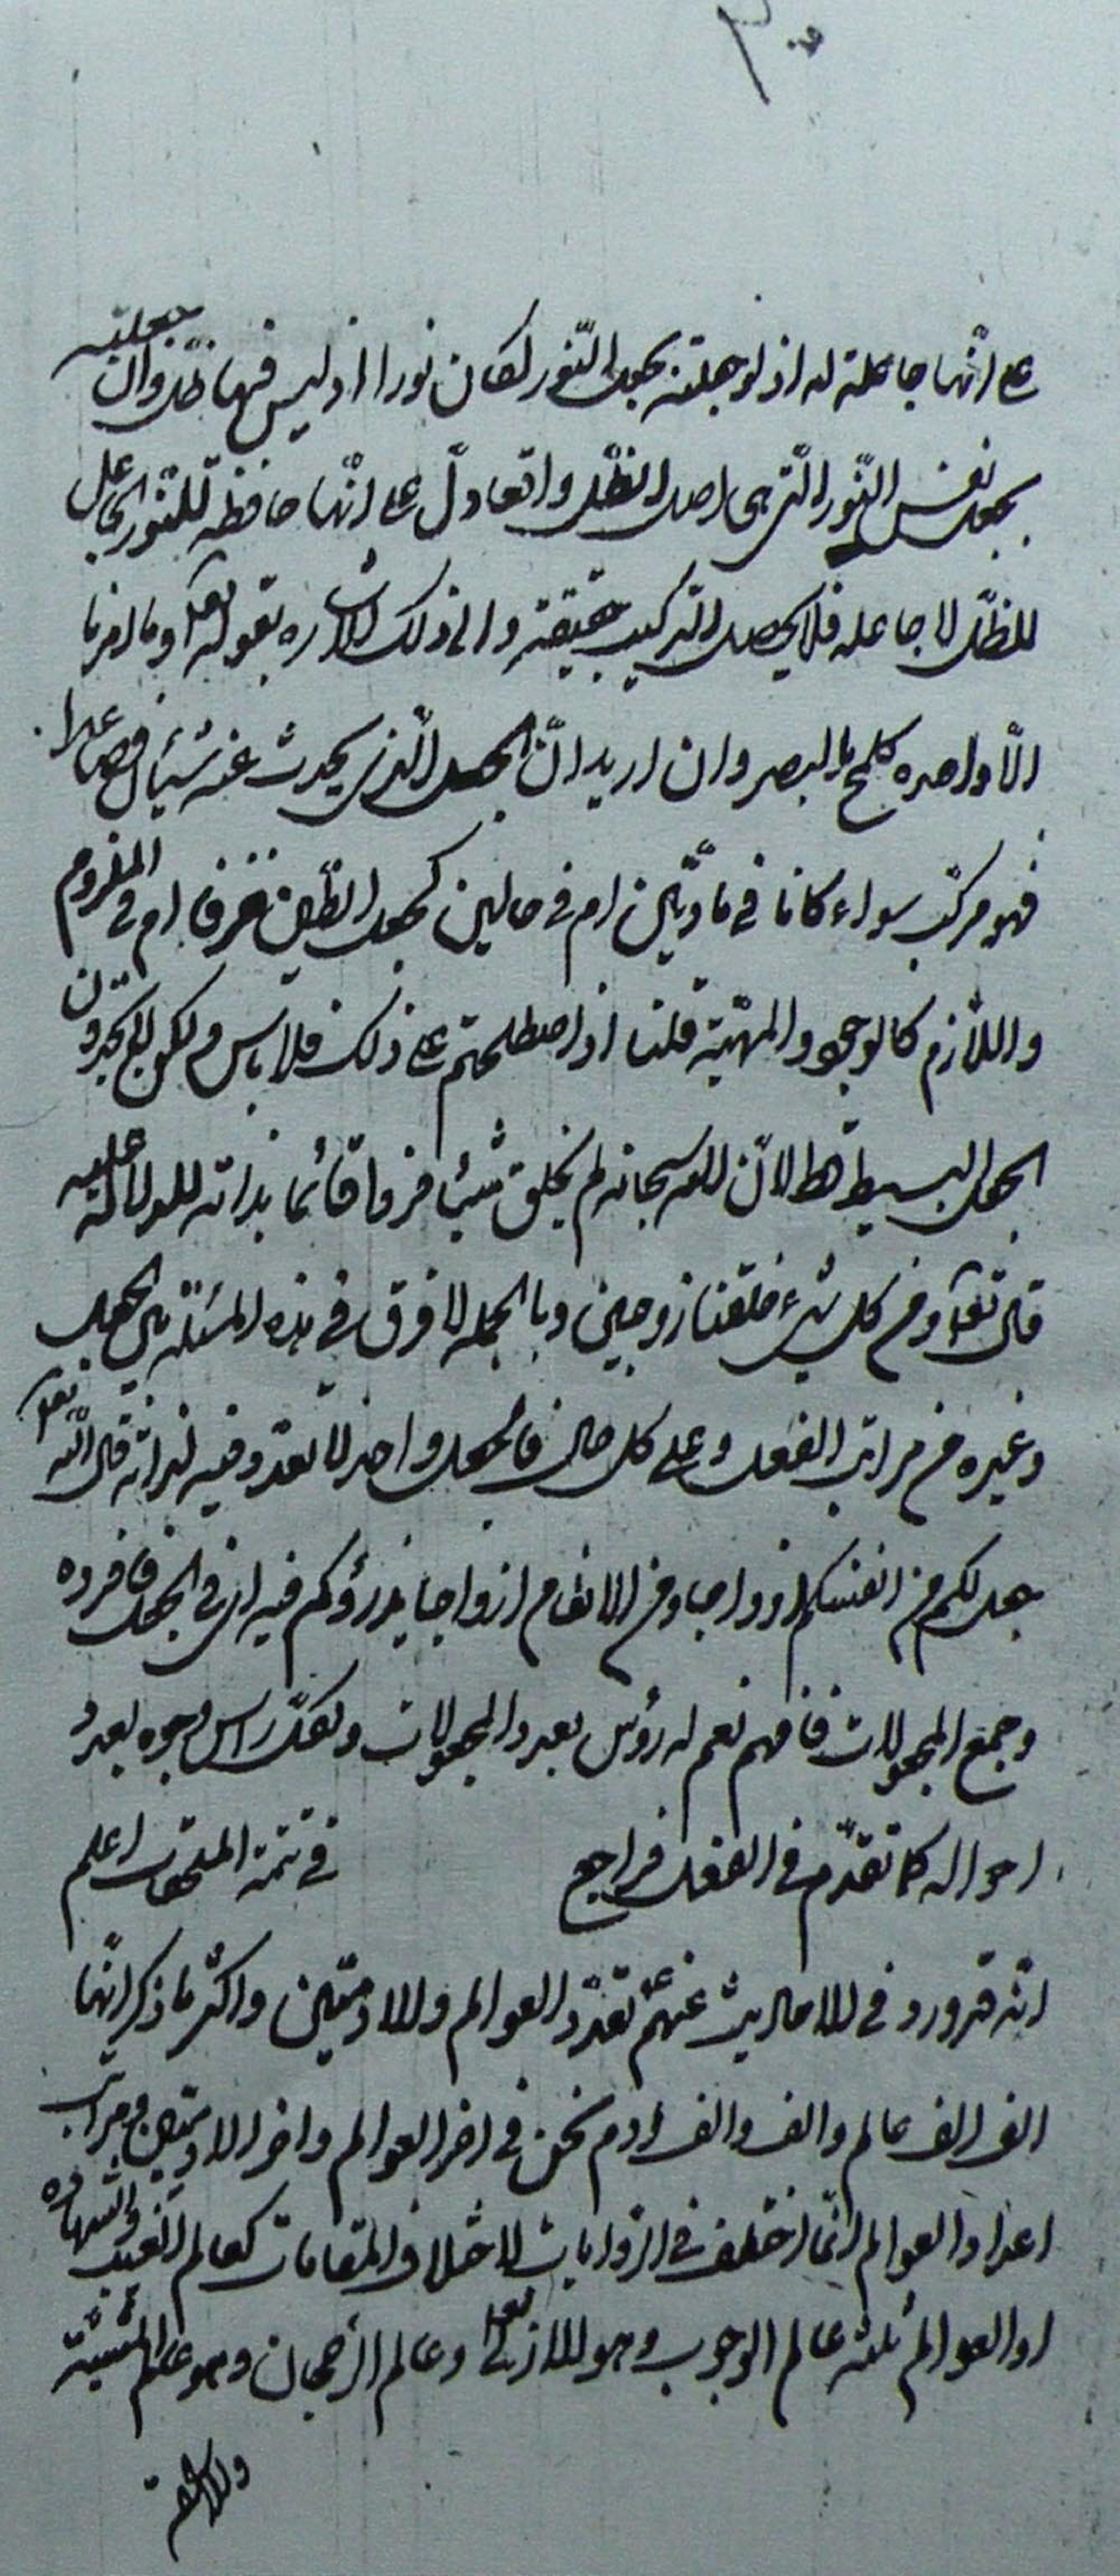 على انها جاعلة له اذ لو جعلته بجعل النور لكان نورا اذ ليس فيها ظل وان جعلته
بجعل نفس النور التي هي اصل الظل واتحادل على انها حافظة للنور الجاعل
للظل لا جاعله فلا يحصل التركيب حقيقة والى ذلك الاشاره بقوله تعالى وما امرنا
الّا واحده كلمح بالبصر وان اريد انّ الجعل الذي يحدث عنه شيئان فصاعدا
فهو مركب سواء كانا في مادّتين ام في حالين كجعل الطين خزفا ام في الملزوم
واللازم كالوجود والمهيّة قلنا اذا اصطلحتم على ذلك فلا باس ولكن لا تجدون
الجعل البسيط قط لانّ الله سبحانه لم يخلق شيئا فردا قائما بذاته للدلالة عليه
قال تعالى ومن كل شيء خلقنا زوجين وبالجمله لا فرق في هذه المسئلة بين الجعل
وغيره من مراتب الفعل وعلى كل حال فالجعل واحد لا تعدد فيه لذاته قال الله تعالى
جعل لكم من انفسكم ازواجا ومن الانعام ازواجا يذرؤكم فيه اي في الجعل فافرده
وجمع المجعولات فافهم نعم له رؤس بعدد المجعولات ولكل راس وجوه بعدد
احواله كما تقدّم في الفعل فراجع في تتمة الملحقات اعلم
انه قد ورد في الاحاديث عنهم ع تعدّد العوالم والادميّين واكثر ما ذكر انّها
الف الف عالم والف والف ادم نحن في اخر العوالم واخر الادميّين ومراتب
اعداد العوالم انما اختلف في الروايات لاختلاف المقامات كعالم الغيب والشهادة
او العوالم ثلثه عالم الوجوب وهو الازل تعالى وعالم الرجحان وهو عالم المشيّة